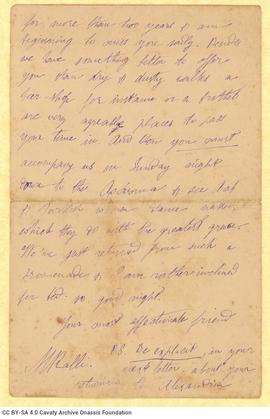 for more than two years & am
beginning to miss you sadly. Besides
we have something better to offer
you than dry & dusty walks a
beer-shop for instance or a brothel
are very agreable places to pass
your time in. And then you must
accompany us on Sunday night
down to the
& Turkish women dance naked
which they do with the greatest grace.
We've just returned from such a
promenade & I am rather inclined
for bed. so good night.
Your most affectionate friend
MRalli.
P.S. Be explicit, in your
next letter, about your
returning to Alexandria
CC BY-SA 4.0 Cavafy Archive Onassis Foundation